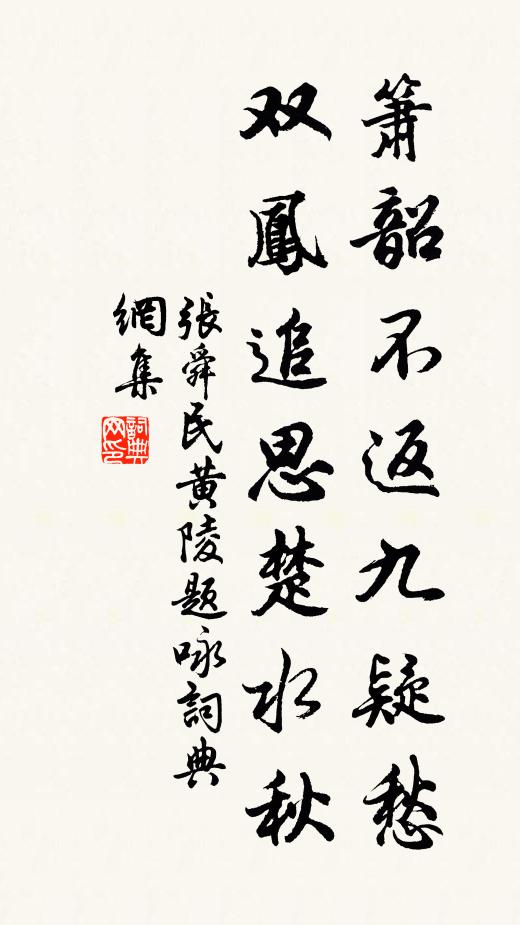 箫韶不返九疑愁
双鳳追思楚水秋
張舜民黄陵题咏詞典
網集
詞典网印